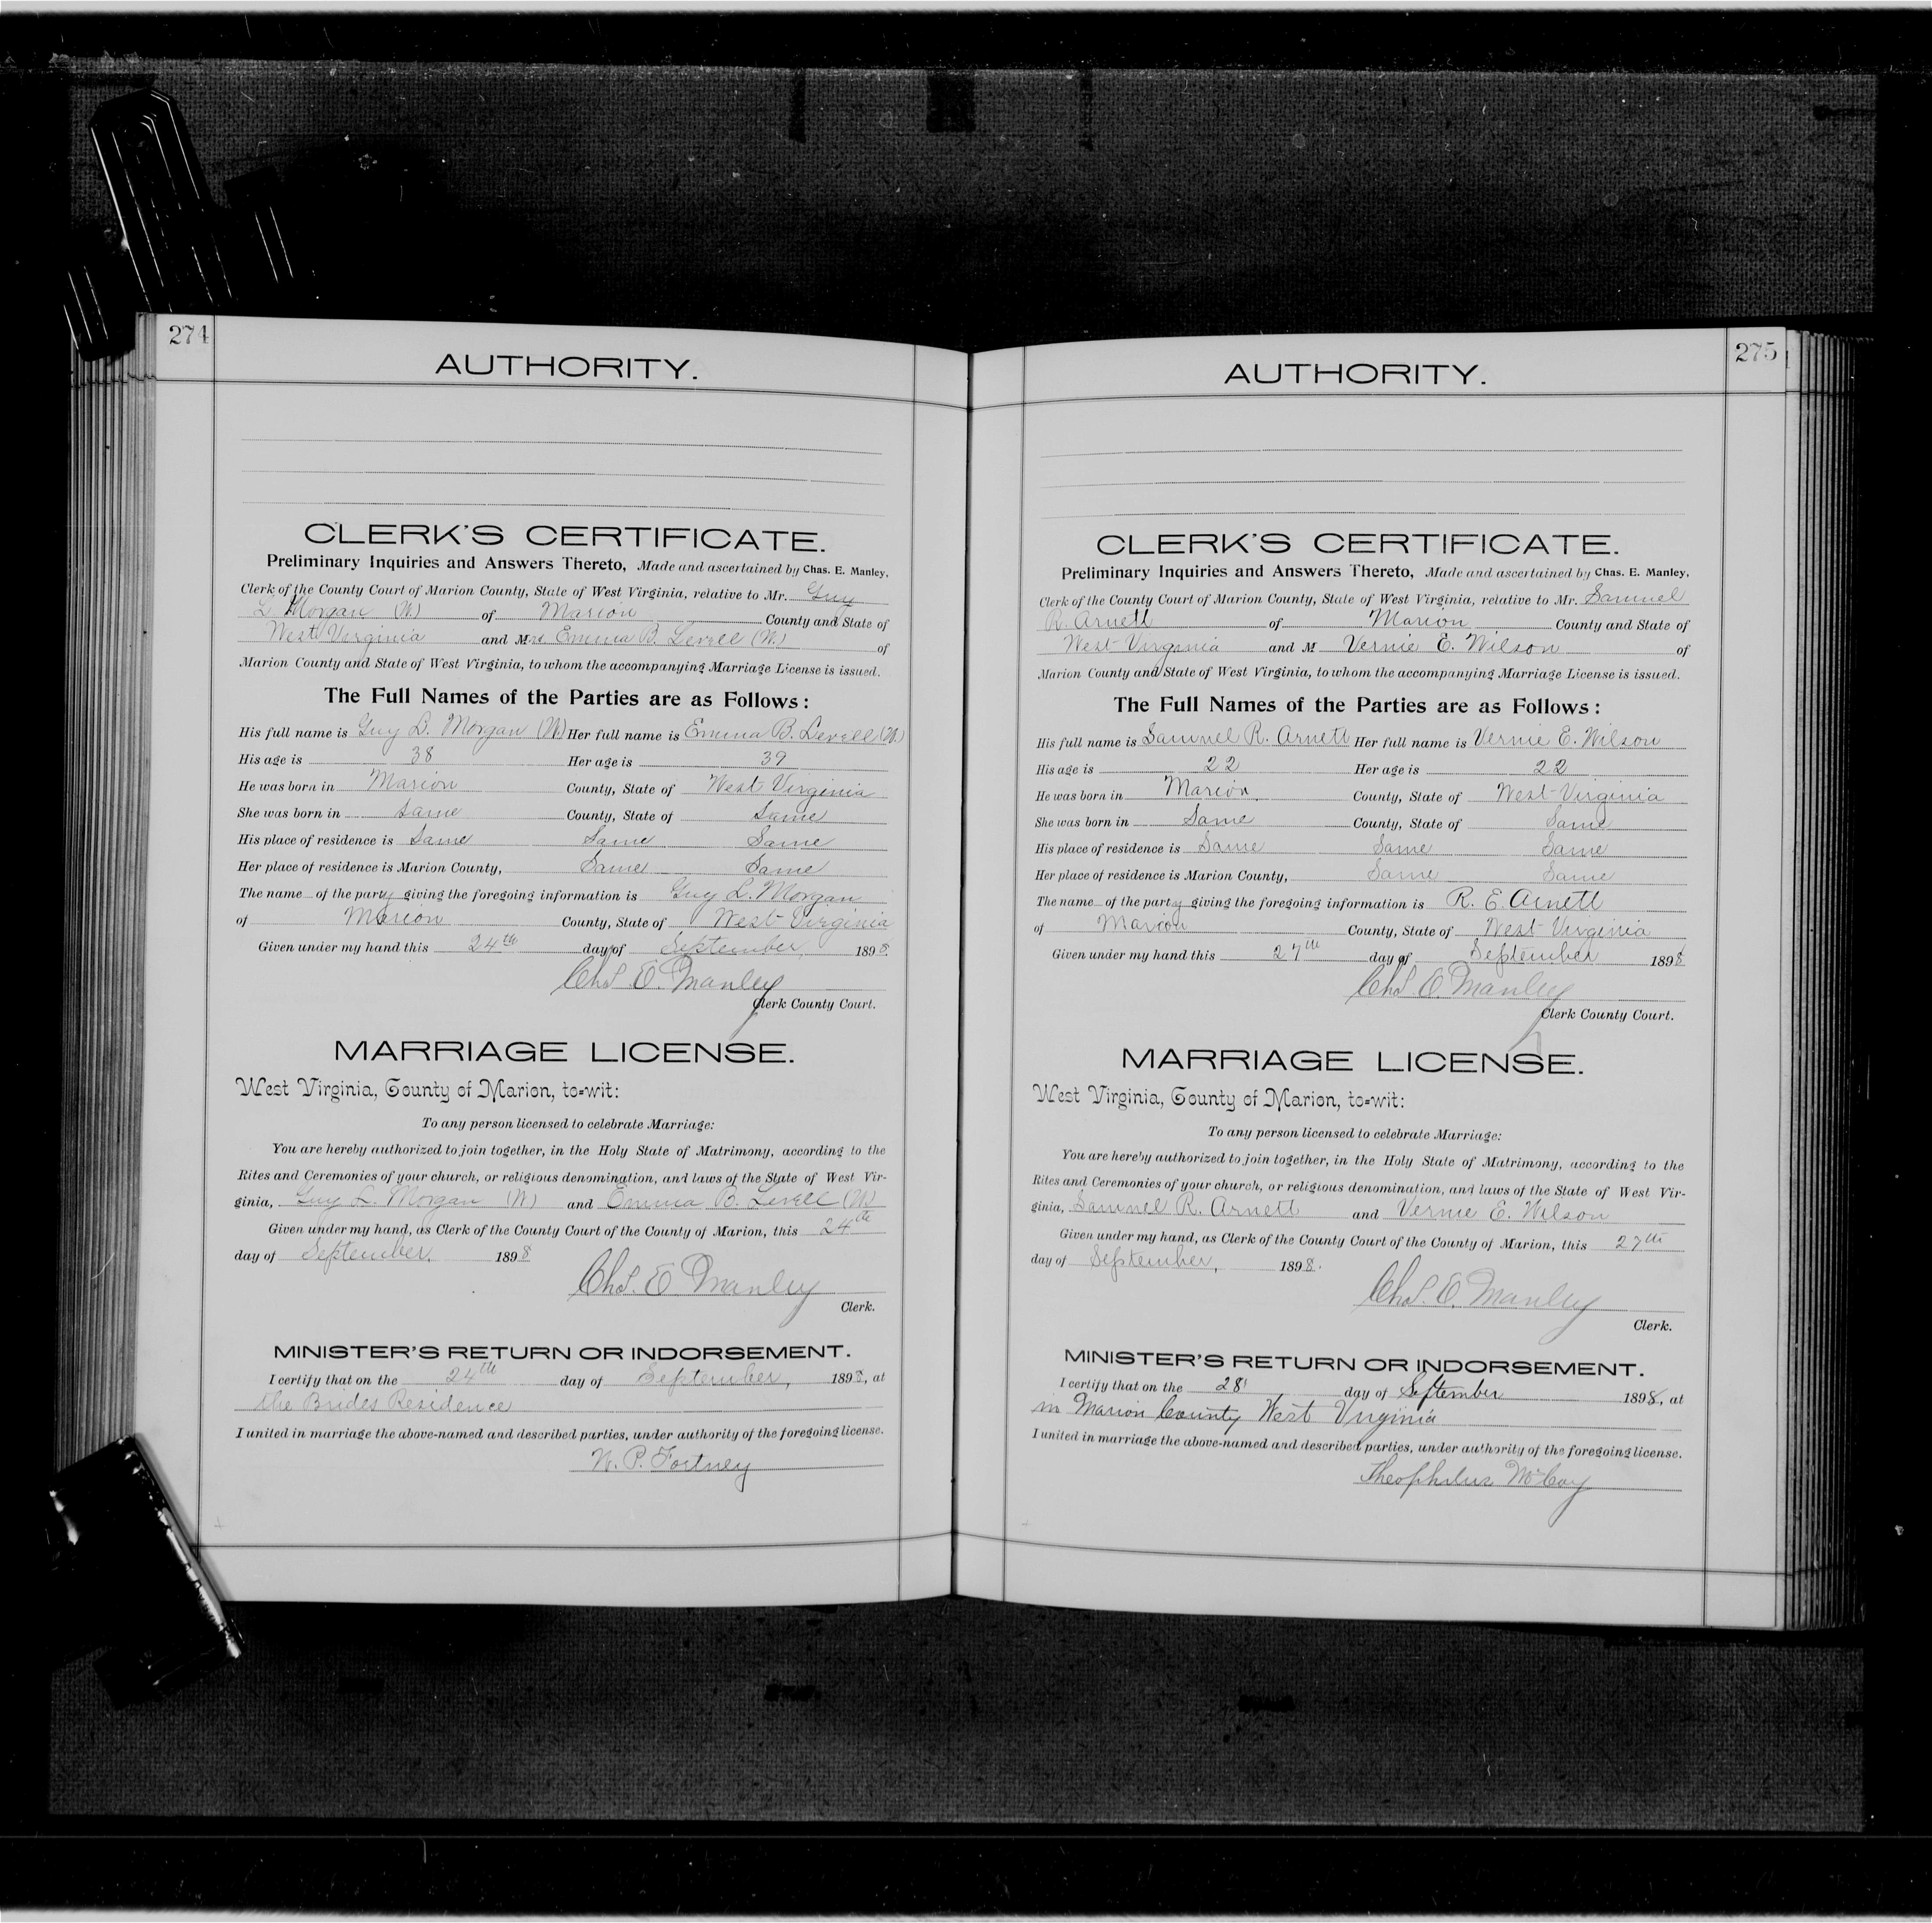 274
AUTHORITY.
CLERK'S CERTIFICATE.
Preliminary Inquiries and Answers Thereto, Made and ascertained by Chas. E. Manley,
Clerk of the County Court of Marion County, State of West Virginia, relative to Mr. Guy
L. Morgan (W) of Marion County and State of
West Virginia and Mrs. Emma B. Levell (W) of
Marion County and State of West Virginia, to whom the accompanying Marriage License is issued.
The Full Names of the Parties are as Follows:
His full name is Guy L. Morgan (W) Her full name is Emma B. Levell (W.)
His age is 38 Her age is 39
He was born in Marion County, State of West Virginia
She was born in Same County, State of Same
His place of residence is Same Same Same
Her place of residence is Marion County, Same Same
The name of the party giving the foregoing information is Guy L. Morgan
of Marion County, State of West Virginia
Given under my hand this 24th day of September, 1898.
Chas. E. Manley
Clerk County Court.
MARRIAGE LICENSE.
West Virginia, County of Marion, to=wit:
To any person licensed to celebrate Marriage:
You are hereby authorized to join together, in the Holy State of Matrimony, according to the
Rites and Ceremonies of your church, or religious denomination, and laws of the State of West Vir-
ginia, Guy L. Morgan (W) and Emma B. Levell (W)
Given under my hand, as Clerk of the County Court of the County of Marion, this 24th
day of September, 1898
Chas. E. Manley
Clerk.
MINISTER'S RETURN OR INDORSEMENT.
I certify that on the 24th day of September, 1898, at
the Brides Residence
I united in marriage the above-named and described parties, under authority of the foregoing license.
W. P. Fortney
275
AUTHORITY.
CLERK'S CERTIFICATE.
Preliminary Inquiries and Answers Thereto, Made and ascertained by Chas. E. Manley,
Clerk of the County Court of Marion County, State of West Virginia, relative to Mr. Samuel
R. Arnett of Marion County and State of
West Virginia and M Vernie E. Wilson of
Marion County and State of West Virginia, to whom the accompanying Marriage License is issued.
The Full Names of the Parties are as Follows:
His full name is Samuel R. Arnett Her full name is Vernie E. Wilson
His age is 22 Her age is 22
He was born in Marion, County, State of West Virginia
She was born in Same County, State of Same
His place of residence is Same Same Same
Her place of residence is Marion County, Same Same
The name of the party giving the foregoing information is R. E. Arnett
of Marion County, State of West Virginia
Given under my hand this 27th day of September 1898
Chas. E. Manley
Clerk County Court.
MARRIAGE LICENSE.
West Virginia, County of Marion, to=wit:
To any person licensed to celebrate Marriage:
You are hereby authorized to join together, in the Holy State of Matrimony, according to the
Rites and Ceremonies of your church, or religious denomination, and laws of the State of West Vir-
ginia, Samuel R. Arnett and Vernie E. Wilson
Given under my hand, as Clerk of the County Court of the County of Marion, this 27th
day of September, 1898.
Chas. E. Manley
Clerk.
MINISTER'S RETURN OR INDORSEMENT.
I certify that on the 28 day of September 1898, at
in Marion County West Virginia
I united in marriage the above-named and described parties, under authority of the foregoing license.
Theophilus McCoy